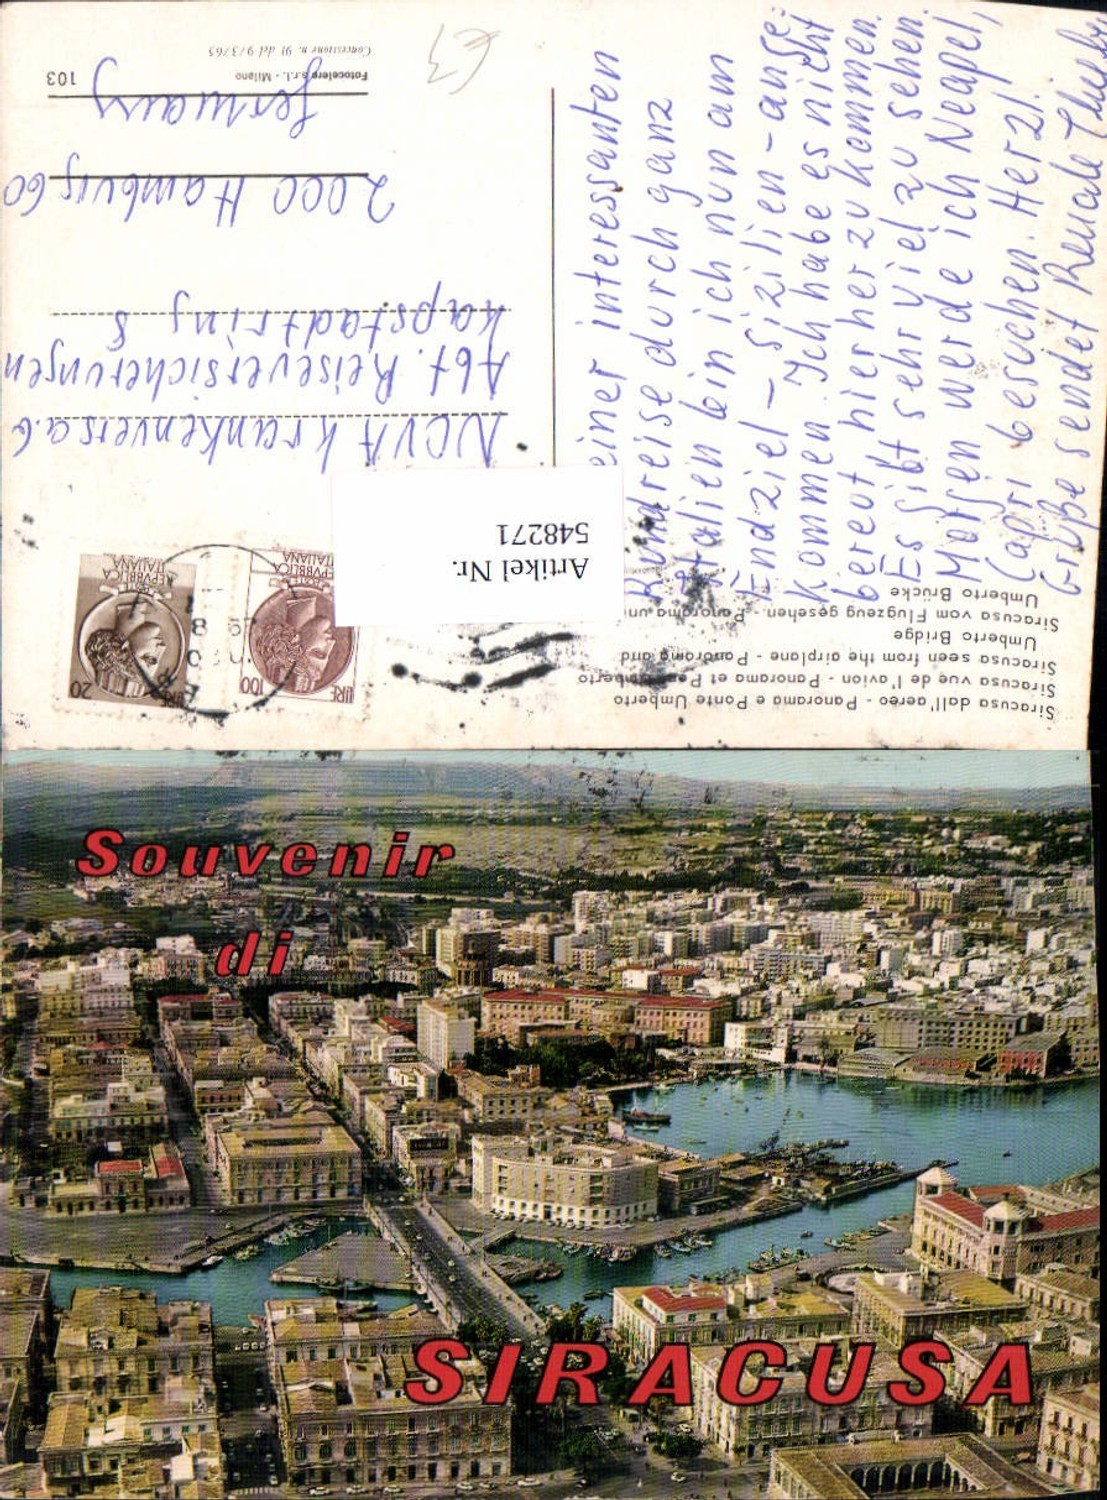 Siracusa dall'aereo - Panorama e Ponte Umberto
Siracusa vue de l'avion - Panorama et Pont Umberto
Siracusa seen from the airplane - Panorama and
Umberto Bridge
Siracusa vom Flugzeug gesehen - Panorama un
Umberto Brücke
einer interessanten
Rundreise durch ganz
Italien bin ich nun am
Endziel - Sizilien - ange-
kommen. Ich habe es nicht
bereut hierher zu kommen.
Es gibt sehr viel zu sehen.
Morgen werde ich Neapel,
Capri besuchen. Herzl.
Grüße sendet Renate
LIRE 100
REPVBBLICA
ITALIANA
LIRE 20
REPVBBLICA
ITALIANA
Artikel Nr.
548271
NOVA Krankenvers.a.G
Abt. Reiseversicherungen
Kapstadtring 8
2000 Hamburg 60
Germany
Fotocelere s.r.l. - Milano
103
Concessione n. 91 del 9/3/65
€3
Souvenir
di
SIRACUSA